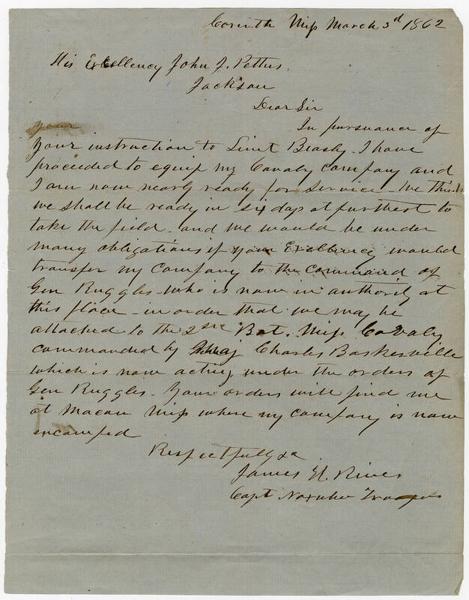 Corinth Miss March 3d 1862
His Excellency John J. Pettus.
Jackson
Dear Sir
In pursuance of
your
your instruction to Lieut Beasly, I have
proceeded to equip my Cavalry Company and
I am now nearly ready for service. We think
we shall be ready in six days at furthest to
take the field. and we would be under
many obligations if your Excellency would
transfer my Company to the command of
Gen Ruggles - who is now in authority at
this place - in order that we may be
attached to the 2nd Bat. Miss Cavalry
commanded by Maj Charles Baskerville
which is now acting under the orders of
Gen Ruggles. Your orders will find me
at Macon Miss where my company is now
encamped
Respectfully &c
James H. Rives
Capt Noxubee Troopers